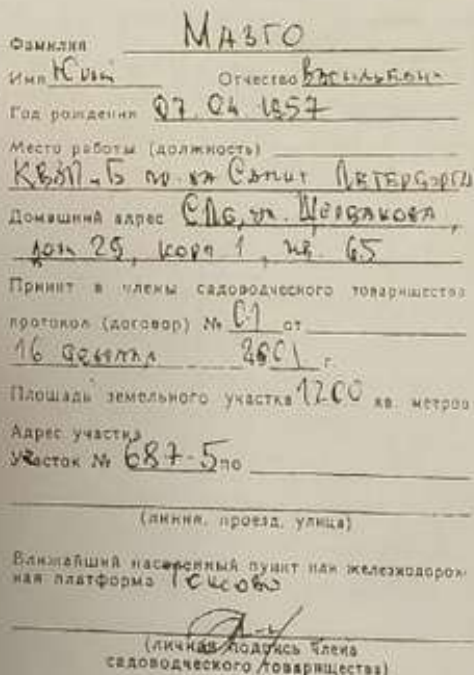 Фамилия МАЗГО
Имя Юрий Отчество Васильевич
Год рождения 07.04.1957
Место работы (должность)
Санкт Петербурга
Домашний адрес СПб, ул. Щербакова,
дом 25, корп 1, кв. 65
Принят в члены садоводческого товарищества
протокол (договор) № 01 от
16 2001 г.
Площадь земельного участка 1200 кв. метров
Адрес участка
Участок № 687-5 по
(линия, проезд, улица)
Ближайший населенный пункт или железнодорож-
ная платформа
(личная подпись члена
садоводческого товарищества)